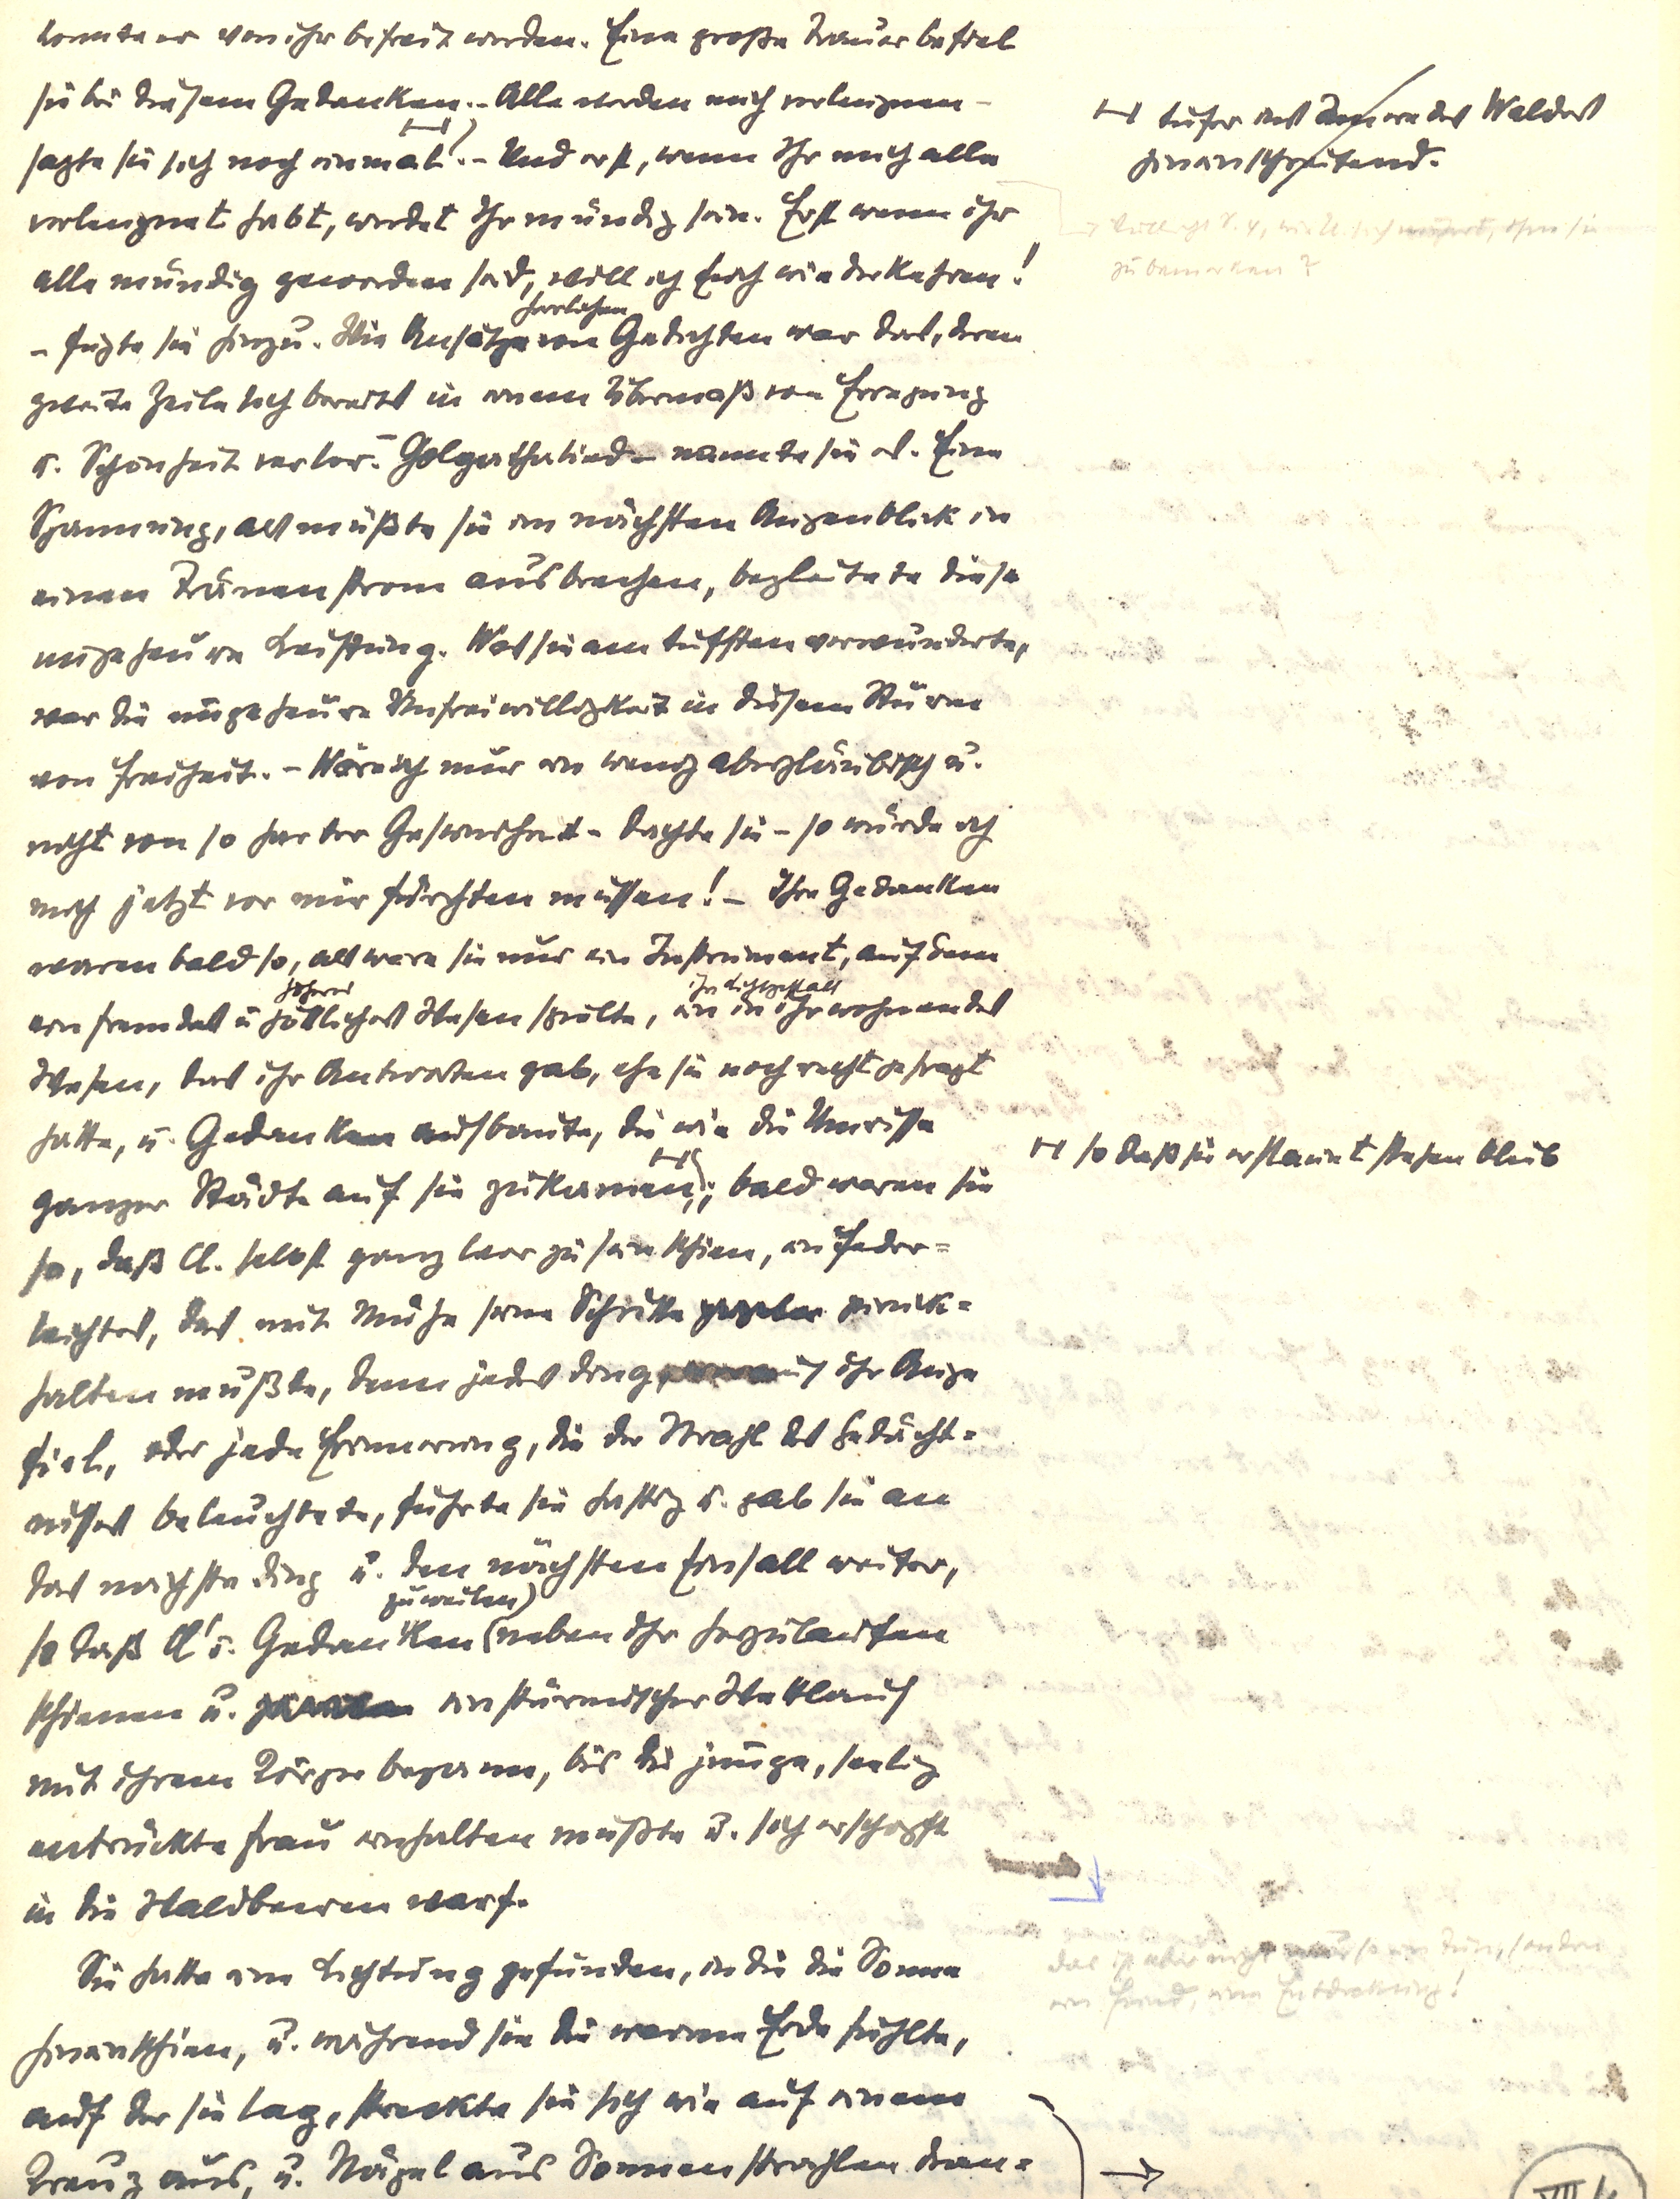 konnte er von ihr befreit werden. Eine große Trauer befiel
sie bei diesem Gedanken. – Alle werden mich verleugnen –
sagte sie sich noch einmal. – Und erst, wenn Ihr mich alle
verleugnet habt, werdet Ihr mündig sein. Erst wenn ihr
alle mündig geworden seid, will ich Euch wiederkehren!
herrlichen
– fügte sie hinzu. Wie Ansätze von Gedichten war das, deren
zweite Zeile sich bereits in einem Übermaß von Erregung
u. Schönheit verlor. – Golgathalied – nannte sie es. Eine
Spannung, als müßte sie im nächsten Augenblick in
einen Tränenstrom ausbrechen, begleitete diese
ungeheure Leistung. Was sie am tiefsten verwunderte,
war die ungeheure Unfreiwilligkeit in diesem Sturm
von Freiheit. – Wäre ich nur ein wenig abergläubisch u.
nicht von so harter Gesundheit – dachte sie – so würde ich
mich jetzt vor mir fürchten müssen! – Ihre Gedanken
waren bald so, als wäre sie nur ein Instrument, auf dem
höheres
ein fremdes u göttliches Wesen spielte, ein in ihr wohnendes
Wesen, das ihr Antworten gab, ehe sie noch recht gefragt
hatte, u. Gedanken aufbaute, die wie die Umrisse
ganzer Städte auf sie zukamen; bald waren sie
so, daß Cl. selbst ganz leer zu sein schien, ein Feder=
leichtes, das mit Mühe seine Schritte zurück=
halten mußte, denn jedes Ding, auf ihr Auge
fiel, oder jede Erinnerung, die der Strahl des Gedächt=
nisses beleuchtete, führte sie hastig u. gab sie an
das nächste Ding u. den nächsten Einfall weiter,
zuweilen
so daß Cl's. Gedanken neben ihr herzulaufen
schienen u. ein stürmischer Wettlauf
mit ihrem Körper begann, bis die junge, selig
entrückte Frau einhalten mußte u. sich erschöpft
in die Waldbeeren warf.
Sie hatte eine Lichtung gefunden, in die die Sonne
hineinschien, u. während sie die warme Erde fühlte,
auf der sie lag, streckte sie sich wie auf einem
Kreuz aus, u. Nägel aus Sonnenstrahlen dran=
tiefer ins Innere des Waldes
hineinschreitend.
zu bemerken?
so daß sie erstaunt stehen blieb
das ist aber nicht
ein Fund, eine Entdeckung!